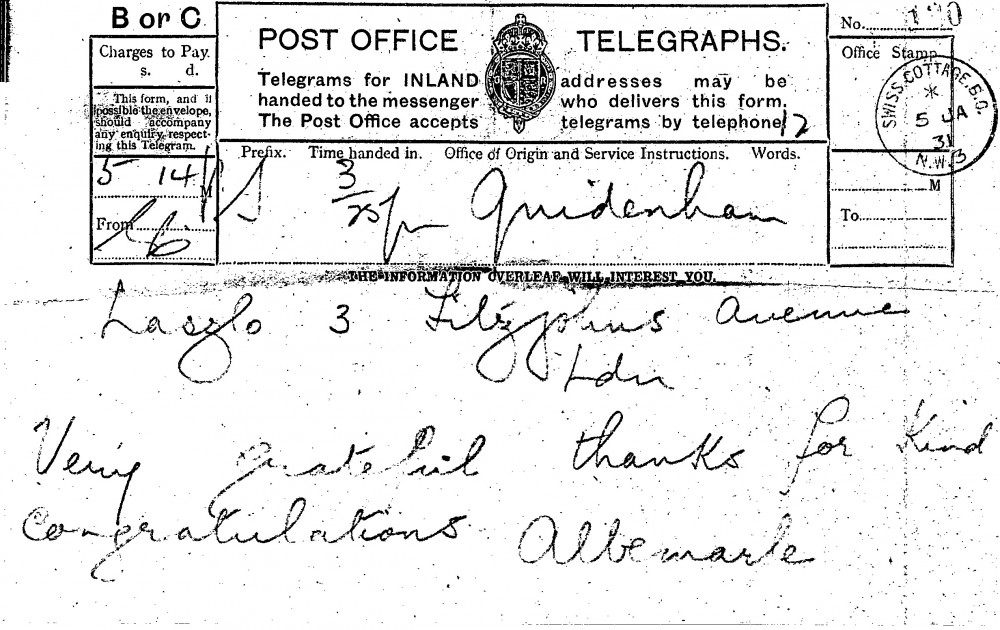 B or C
POST OFFICE TELEGRAPHS.
No.
Charges to Pay.
s. d.
Office Stamp.
SWISS COTTAGE B.O.
5 JA
31
N.W.3
This form, and if
possible the envelope,
should accompany
any enquiry respect-
ing this Telegram.
Telegrams for INLAND addresses may be
handed to the messenger who delivers this form.
The Post Office accepts telegrams by telephone
12
Prefix. Time handed in. Office of Origin and Service Instructions. Words.
5 14
M
From
Quidenham
M
To
THE INFORMATION OVERLEAF WILL INTEREST YOU.
Laszlo 3 Fitzjohns Avenue
Ldn
Very grateful thanks for Kind
Congratulations Albemarle